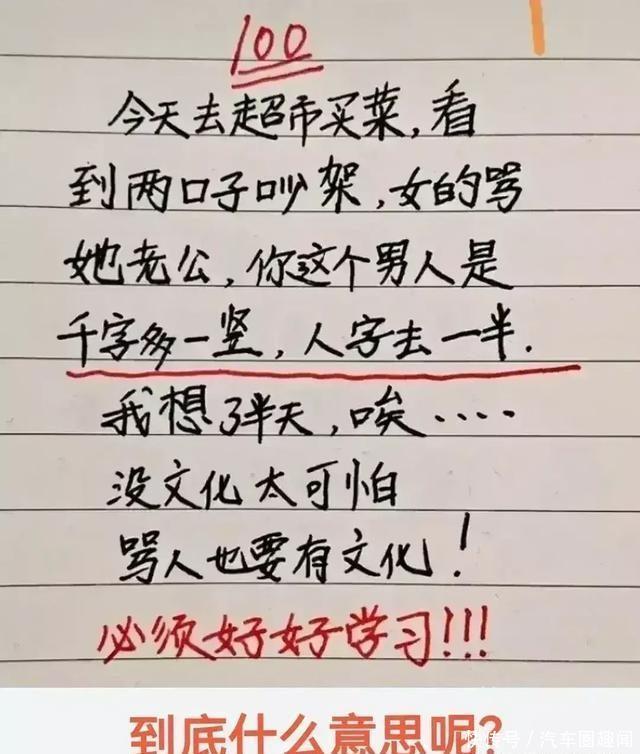 100
今天去超市买菜,看
到两口子吵架,女的骂
她老公,你这个男人是
千字多一竖,人字去一半.
我想了半天,唉····
没文化太可怕
骂人也要有文化!
必须好好学习!!!
到底什么意思呢?
快传号/汽车圈趣闻